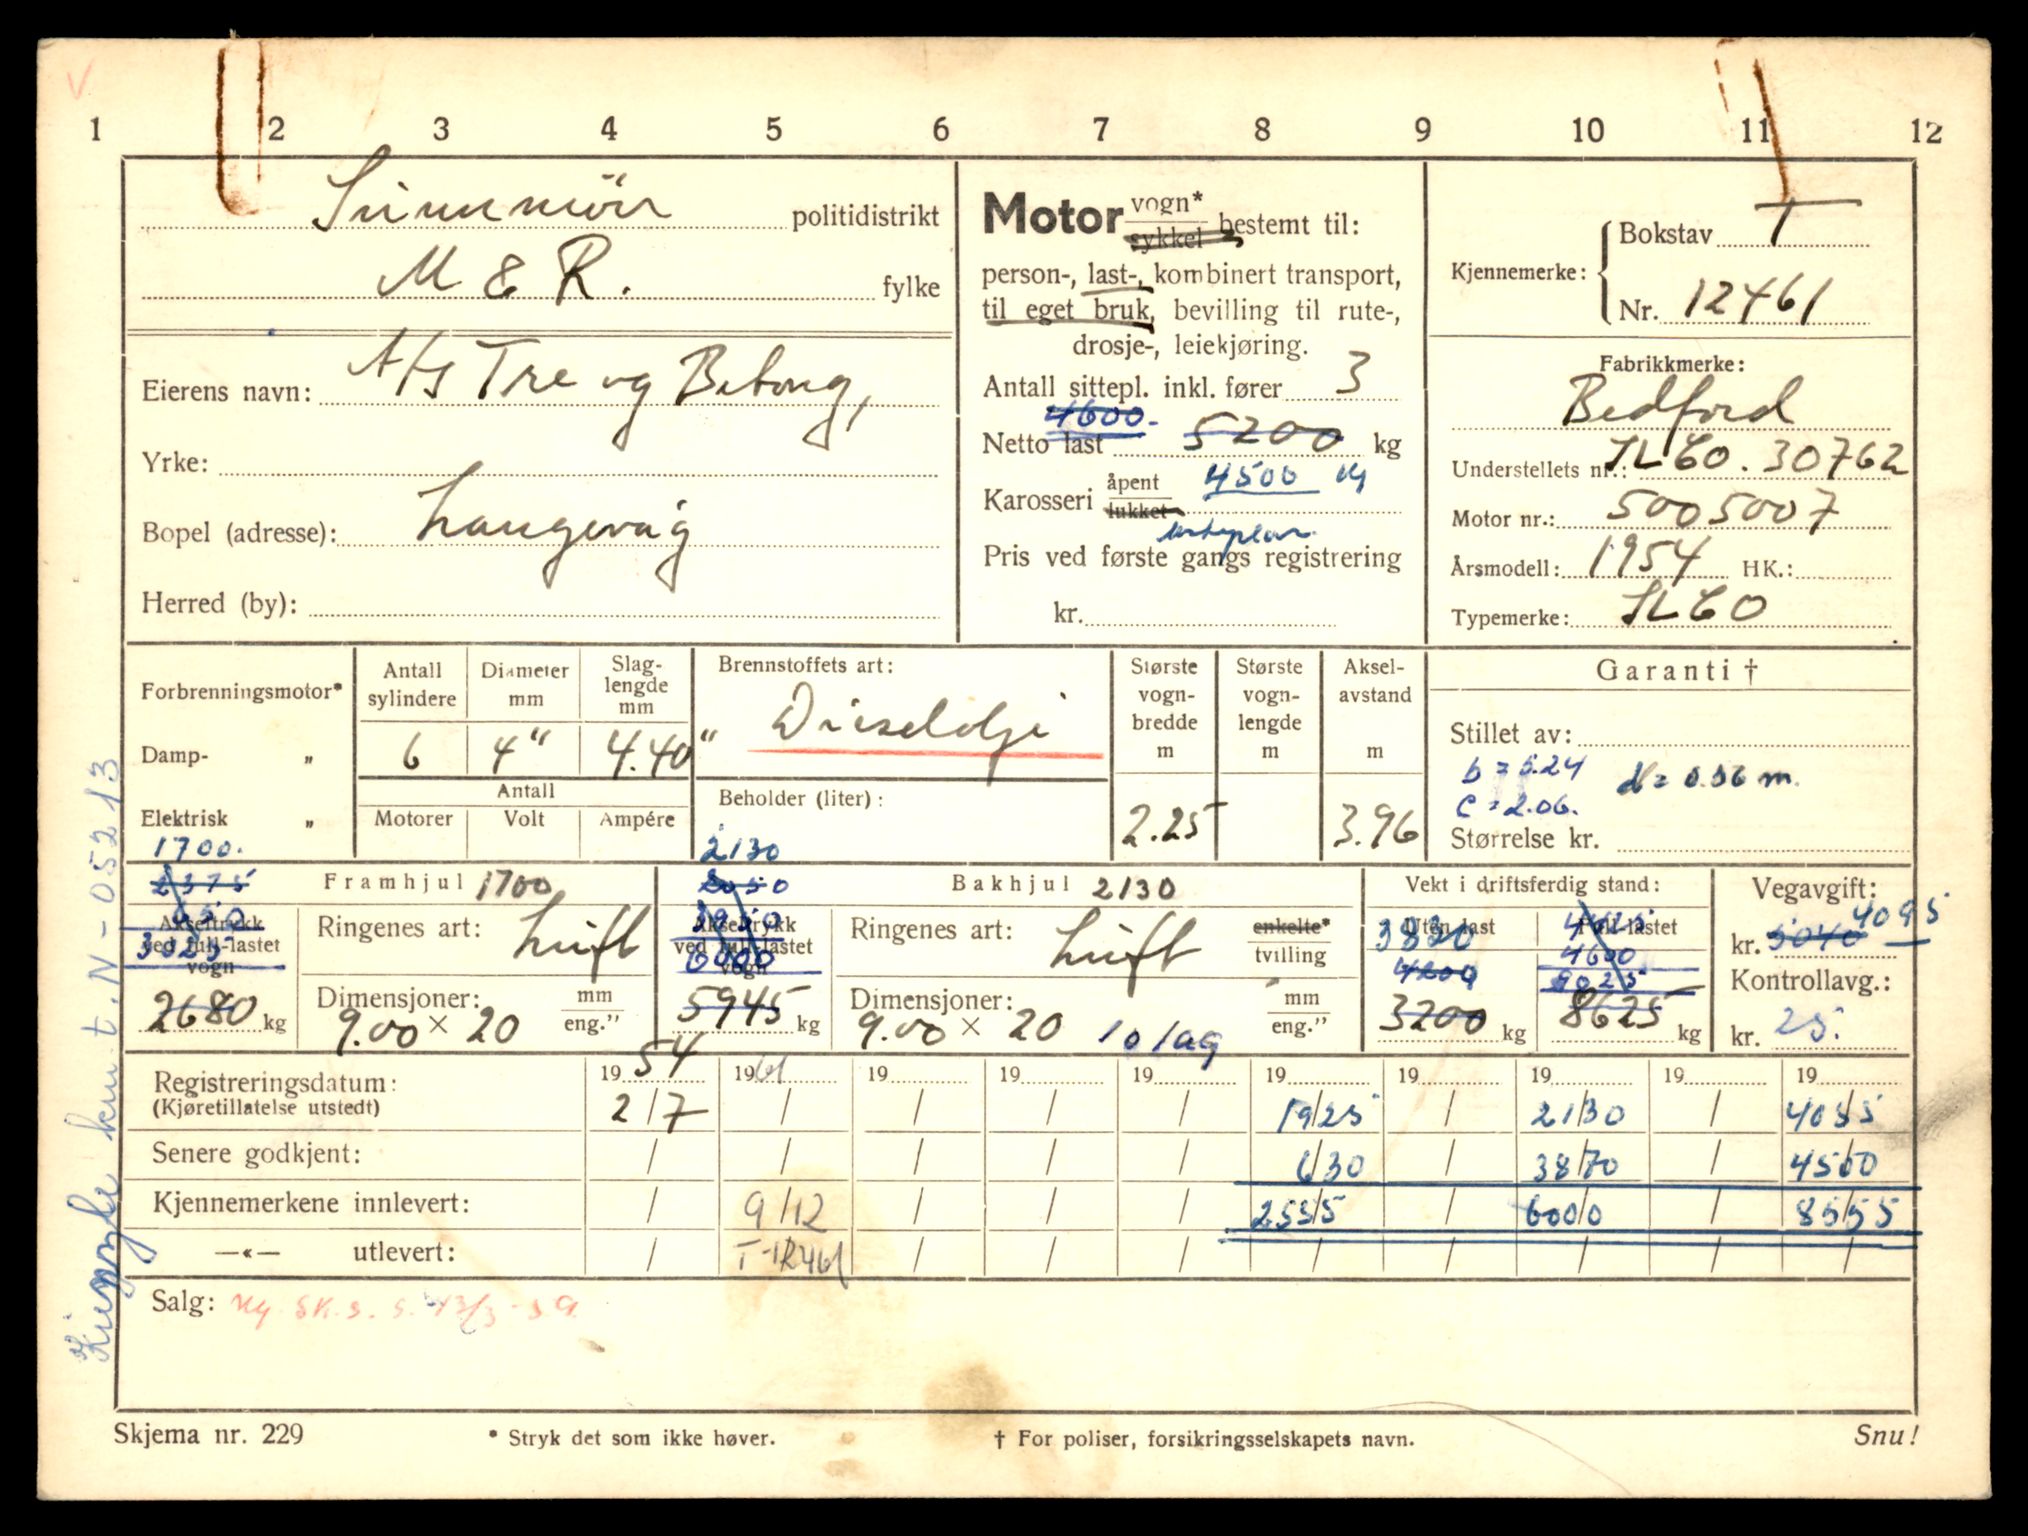 V
1 2 3 4 5 6 7 8 9 10 11 12
Sunnmör politidistrikt
M & R. fylke
Eierens navn: A/s Tre og Betong,
Yrke:
Bopel (adresse): Langevåg
Herred (by):
Motor vogn* sykkel bestemt til:
person-, last-, kombinert transport,
til eget bruk, bevilling til rute-,
drosje-, leiekjøring.
Antall sittepl. inkl. fører 3
4600.-
Netto last 5200 kg
4500 kg
Karosseri åpent lukket
lasteplan
Pris ved første gangs registrering
kr.
Kjennemerke: Bokstav T
Nr. 12461
Fabrikkmerke:
Bedford
Understellets nr.: SLCO. 30762
Motor nr.: 5005007
Årsmodell: 1954 HK.:
Typemerke: SLCO
Forbrenningsmotor*
Damp- „
Elektrisk „
Antall sylindere 6
Diameter mm 4"
Slaglengde mm 4.40"
Antall
Motorer Volt Ampére
Brennstoffets art:
Dieselolje
Beholder (liter):
Største vognbredde m 2.25
Største vognlengde m
Akselavstand m 3.96
Garanti †
Stillet av:
b = 5.24 d = 0.56 m.
c = 2.06.
Størrelse kr.
1700.
2375
950
3025
Akseltrykk ved full-lastet vogn
2680 kg
Framhjul 1700
Ringenes art: Luft
Dimensjoner: 9.00 × 20 mm eng."
2130
6050
3950
6000
Akseltrykk ved full-lastet vogn
5945 kg
Bakhjul 2130
Ringenes art: Luft enkelte* tvilling
Dimensjoner: 9.00 × 20 10 lag mm eng."
Vekt i driftsferdig stand:
Uten last Full-lastet
3830
4200 4600
8025
3200 kg 8625 kg
Vegavgift:
4095
kr. 5040
Kontrollavg.:
kr. 25.
Registreringsdatum: 19 54 19 61 19 19 19 19 19 19 19 19
(Kjøretillatelse utstedt) 2/7 / / / / 1925 / 2130 / 4055
Senere godkjent: / / / / / 630 / 3870 / 4500
Kjennemerkene innlevert: / 9/12 / / / 2555 / 6000 / 8555
—«— utlevert: / T-12461 / / / / / / / /
Salg:
Skjema nr. 229 * Stryk det som ikke høver. † For poliser, forsikringsselskapets navn. Snu!